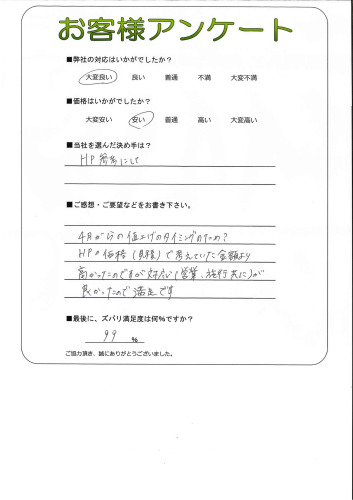 お客様アンケート
■弊社の対応はいかがでしたか？
大変良い 良い 普通 不満 大変不満
■価格はいかがでしたか？
大変安い 安い 普通 高い 大変高い
■当社を選んだ決め手は？
HP参考にして
■ご感想・ご要望などをお書き下さい。
4月からの値上げのタイミングのため？
HPの価格（見積）で考えていた金額より
高かったのですが対応（営業、施行共に）が
良かったので満足です
■最後に、ズバリ満足度は何％ですか？
99 ％
ご協力頂き、誠にありがとうございました。